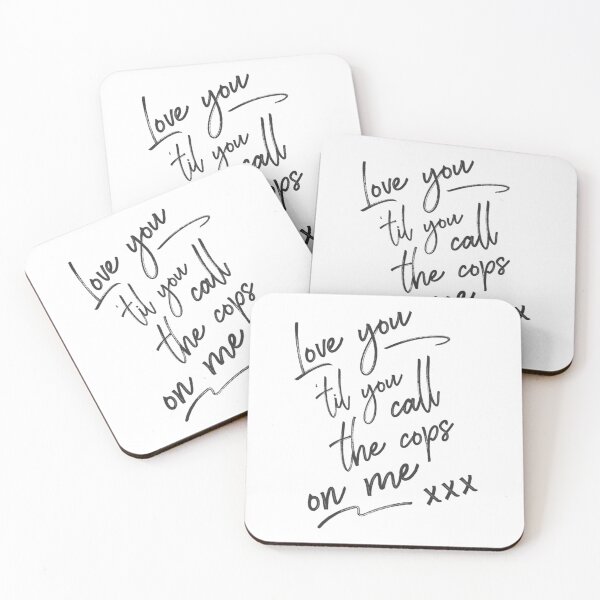 Love you
'til you call
xx
Love you
'til you call
the cops
x
Love you
'til you call
the cops
on me
Love you
'til you call
the cops
on me xxx